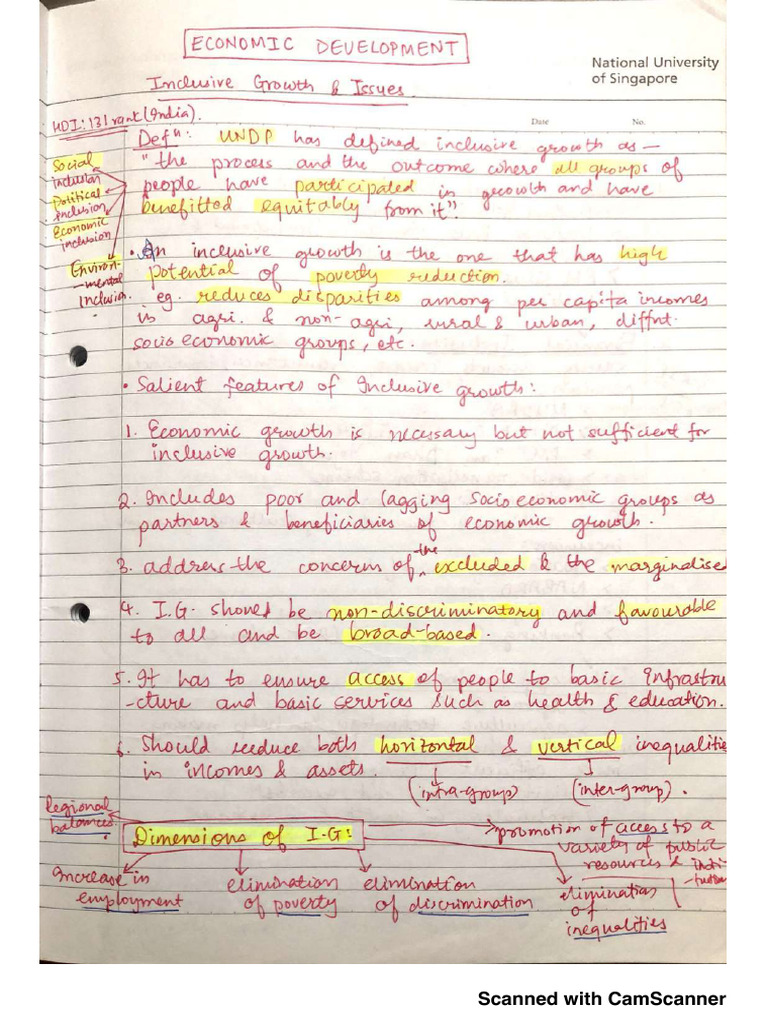 ECONOMIC DEVELOPMENT
National University
of Singapore
Inclusive Growth & Issues.
Date No.
HDI: 131 rank (India).
Defn: UNDP has defined inclusive growth as —
"the process and the outcome where all groups of
people have participated in growth and have
benefitted equitably from it".
Social
inclusion
Political
inclusion
Economic
inclusion
Environ-
-mental
Inclusion.
• An inclusive growth is the one that has high
potential of poverty reduction.
eg. reduces disparities among per capita incomes
in agri. & non-agri, rural & urban, diffnt.
socio economic groups, etc.
• Salient features of Inclusive growth:
1. Economic growth is necessary but not sufficient for
inclusive growth.
2. Includes poor and lagging socio economic groups as
partners & beneficiaries of economic growth.
3. address the concerns of the excluded & the marginalise
4. I.G. should be non-discriminatory and favourable
to all and be broad-based.
5. It has to ensure access of people to basic infrastru
-cture and basic services such as health & education.
6. Should reduce both horizontal & vertical inequalitie
in incomes & assets. (intra-group) (inter-group).
Regional
balances.
Dimensions of I-G:
promotion of access to a
variety of public
resources & insti-
-tution
Increase in
employment
elimination
of poverty
elimination
of discrimination
elimination
of
inequalities
Scanned with CamScanner